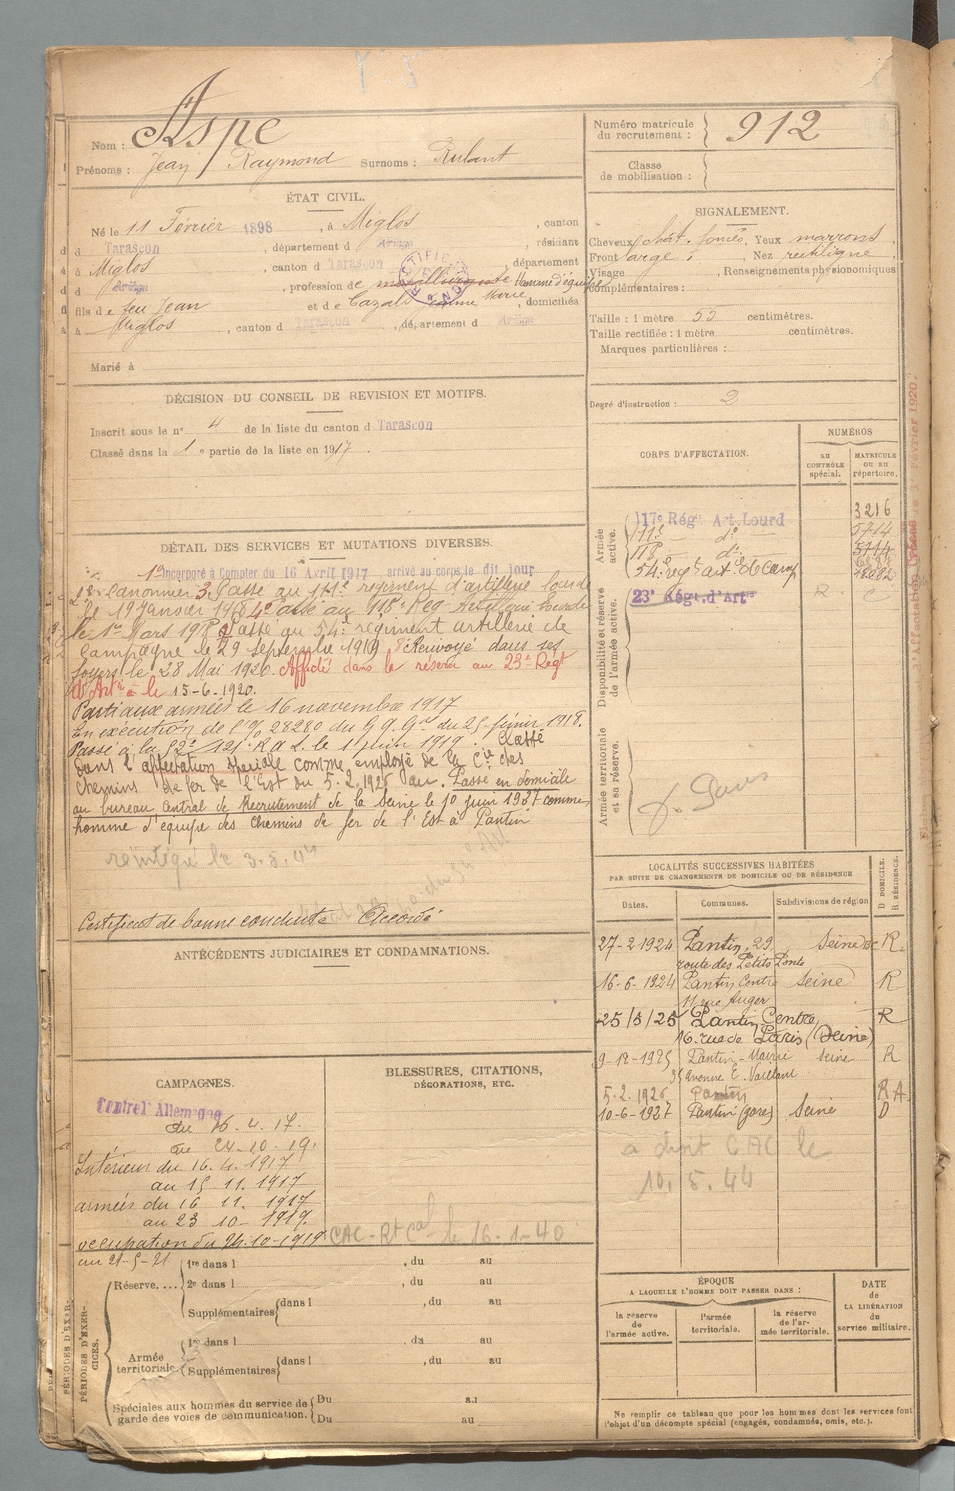 Nom : Aspe
Prénoms : Jean Raymond Surnoms : Rulant
Numéro matricule du recrutement : 912
Classe de mobilisation :
ÉTAT CIVIL.
Né le 11 Février 1898, à Miglos, canton
d Tarascon, département d Ariège, résidant
à Miglos, canton d Tarascon, département
d Ariège, profession de Homme d'équipe
fils de feu Jean et de Cazals Jeanne Marie, domiciliée
à Miglos, canton d Tarascon, département d Ariège
Marié à
SIGNALEMENT.
Cheveux chât. foncés. Yeux marrons
Front large Nez rectiligne
Visage , Renseignements physionomiques
complémentaires :
Taille : 1 mètre 53 centimètres.
Taille rectifiée : 1 mètre centimètres.
Marques particulières :
Degré d'instruction : 2
DÉCISION DU CONSEIL DE REVISION ET MOTIFS.
Inscrit sous le n° 4 de la liste du canton d Tarascon
Classé dans la 1 e partie de la liste en 1917.
DÉTAIL DES SERVICES ET MUTATIONS DIVERSES.
1° Incorporé à Compter du 16 Avril 1917 arrivé au corps le dit jour
Canonnier 3° Passé au 111e régiment d'artillerie lourde
le 19 Janvier 1918 4° Passé au 118e Reg Artillerie Lourde
le 1er Mars 1918 Passé au 54e régiment artillerie de
Campagne le 29 septembre 1919 Renvoyé dans ses
foyers le 28 Mai 1920. Affecté dans la réserve au 23e Régt
d'Artie à le 15-6-1920.
Parti aux armées le 16 novembre 1917
En exécution de l'O/ 28280 du G.Q.Gal du 25 février 1918.
Passé à la 52e 121e R.A.L. le 1 juin 1919. Classé
dans l'affectation spéciale comme employé de la Cie des
chemins de fer de l'Est du 5.2.1926 au . Passé en domicile
au bureau Central de Recrutement de la Seine le 10 juin 1927 comme
homme d'équipe des chemins de fer de l'Est à Pantin
réintégré le 3.5.
Certificat de bonne conduite Accordé
CORPS D'AFFECTATION.
NUMÉROS
AU CONTRÔLE spécial.
MATRICULE OU AU répertoire.
Armée active.
117e Régt Art. Lourd 3216
111e d° 5714
118 d° 5714
54e régt artie de Camp
Disponibilité et réserve de l'armée active.
23e Régt d'Artie
Armée territoriale et sa réserve.
Paris
d'Affectation Février 1920.
LOCALITÉS SUCCESSIVES HABITÉES
PAR SUITE DE CHANGEMENTS DE DOMICILE OU DE RÉSIDENCE
Dates. Communes. Subdivisions de région D DOMICILE. R RÉSIDENCE.
27-2-1924 Pantin, 29 Seine R.
route des Petits Ponts
16-6-1924 Pantin Centre Seine R
11 rue Auger
25/3/25 Pantin Centre R
16. rue de Paris (Seine)
9-12-1925 Pantin-Mairie Seine R
35 avenue E. Vaillant
5.2.1926 Pantin R A.
10-6-1927 Pantin (gare) Seine D
a droit CAC le
10. 5. 44
ANTÉCÉDENTS JUDICIAIRES ET CONDAMNATIONS.
CAMPAGNES.
Contre l'Allemagne
du 16.4.17.
au 24.10.19.
Intérieur du 16.4.1917
au 15.11.1917
armées du 16 11. 1917
au 23 10- 1919.
occupation du 24.10-1919
au 21-5-21
BLESSURES, CITATIONS,
DÉCORATIONS, ETC.
CAC-Rt Cal le 16-1-40
PÉRIODES D'EXERCICES.
Réserve....
1re dans l , du au
2e dans l , du au
Supplémentaires dans l , du au
Armée territoriale
1re dans l , du au
Supplémentaires dans l , du au
Spéciales aux hommes du service de garde des voies de communication.
Du au
Du au
ÉPOQUE
A LAQUELLE L'HOMME DOIT PASSER DANS :
la réserve de l'armée active.
l'armée territoriale.
la réserve de l'armée territoriale.
DATE de LA LIBÉRATION du service militaire.
Ne remplir ce tableau que pour les hommes dont les services font
l'objet d'un décompte spécial (engagés, condamnés, omis, etc.).